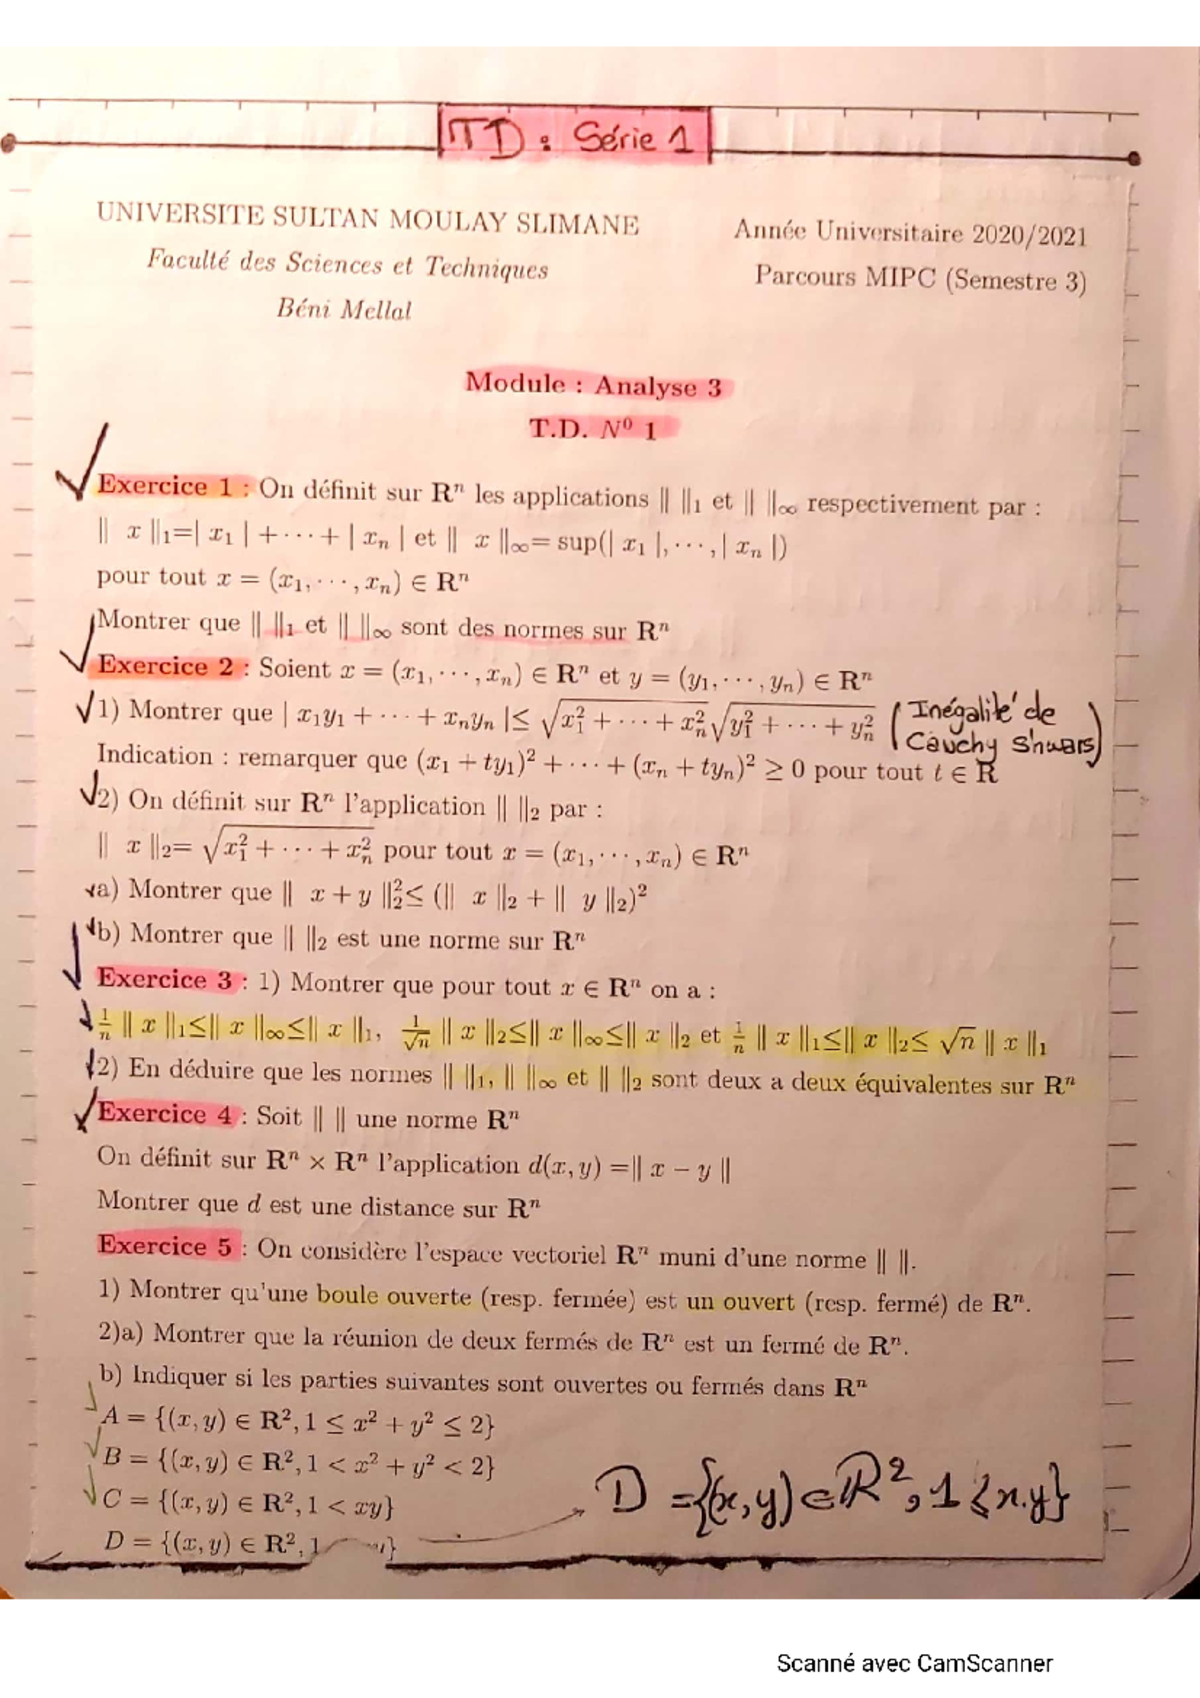 TD : Série 1
UNIVERSITE SULTAN MOULAY SLIMANE
Année Universitaire 2020/2021
Faculté des Sciences et Techniques
Parcours MIPC (Semestre 3)
Béni Mellal
Module : Analyse 3
T.D. N⁰ 1
Exercice 1 : On définit sur Rⁿ les applications ‖ ‖₁ et ‖ ‖∞ respectivement par :
‖ x ‖₁=| x₁ | + ··· + | xₙ | et ‖ x ‖∞= sup(| x₁ |, ··· , | xₙ |)
pour tout x = (x₁, ··· , xₙ) ∈ Rⁿ
Montrer que ‖ ‖₁ et ‖ ‖∞ sont des normes sur Rⁿ
Exercice 2 : Soient x = (x₁, ··· , xₙ) ∈ Rⁿ et y = (y₁, ··· , yₙ) ∈ Rⁿ
1) Montrer que | x₁y₁ + ··· + xₙyₙ |≤ √(x₁² + ··· + xₙ²) √(y₁² + ··· + yₙ²) (Inégalité de
Cauchy S'hwars)
Indication : remarquer que (x₁ + ty₁)² + ··· + (xₙ + tyₙ)² ≥ 0 pour tout t ∈ R
2) On définit sur Rⁿ l'application ‖ ‖₂ par :
‖ x ‖₂= √(x₁² + ··· + xₙ²) pour tout x = (x₁, ··· , xₙ) ∈ Rⁿ
a) Montrer que ‖ x + y ‖₂²≤ (‖ x ‖₂ + ‖ y ‖₂)²
b) Montrer que ‖ ‖₂ est une norme sur Rⁿ
Exercice 3 : 1) Montrer que pour tout x ∈ Rⁿ on a :
1/n ‖ x ‖₁≤‖ x ‖∞≤‖ x ‖₁, 1/√n ‖ x ‖₂≤‖ x ‖∞≤‖ x ‖₂ et 1/n ‖ x ‖₁≤‖ x ‖₂≤ √n ‖ x ‖₁
2) En déduire que les normes ‖ ‖₁, ‖ ‖∞ et ‖ ‖₂ sont deux a deux équivalentes sur Rⁿ
Exercice 4 : Soit ‖ ‖ une norme Rⁿ
On définit sur Rⁿ × Rⁿ l'application d(x, y) =‖ x − y ‖
Montrer que d est une distance sur Rⁿ
Exercice 5 : On considère l'espace vectoriel Rⁿ muni d'une norme ‖ ‖.
1) Montrer qu'une boule ouverte (resp. fermée) est un ouvert (resp. fermé) de Rⁿ.
2)a) Montrer que la réunion de deux fermés de Rⁿ est un fermé de Rⁿ.
b) Indiquer si les parties suivantes sont ouvertes ou fermés dans Rⁿ
A = {(x, y) ∈ R², 1 ≤ x² + y² ≤ 2}
B = {(x, y) ∈ R², 1 < x² + y² < 2}
C = {(x, y) ∈ R², 1 < xy}
D = {(x, y) ∈ R², 1 }
D = {(x, y) ∈ R², 1 ≤ x.y}
Scanné avec CamScanner